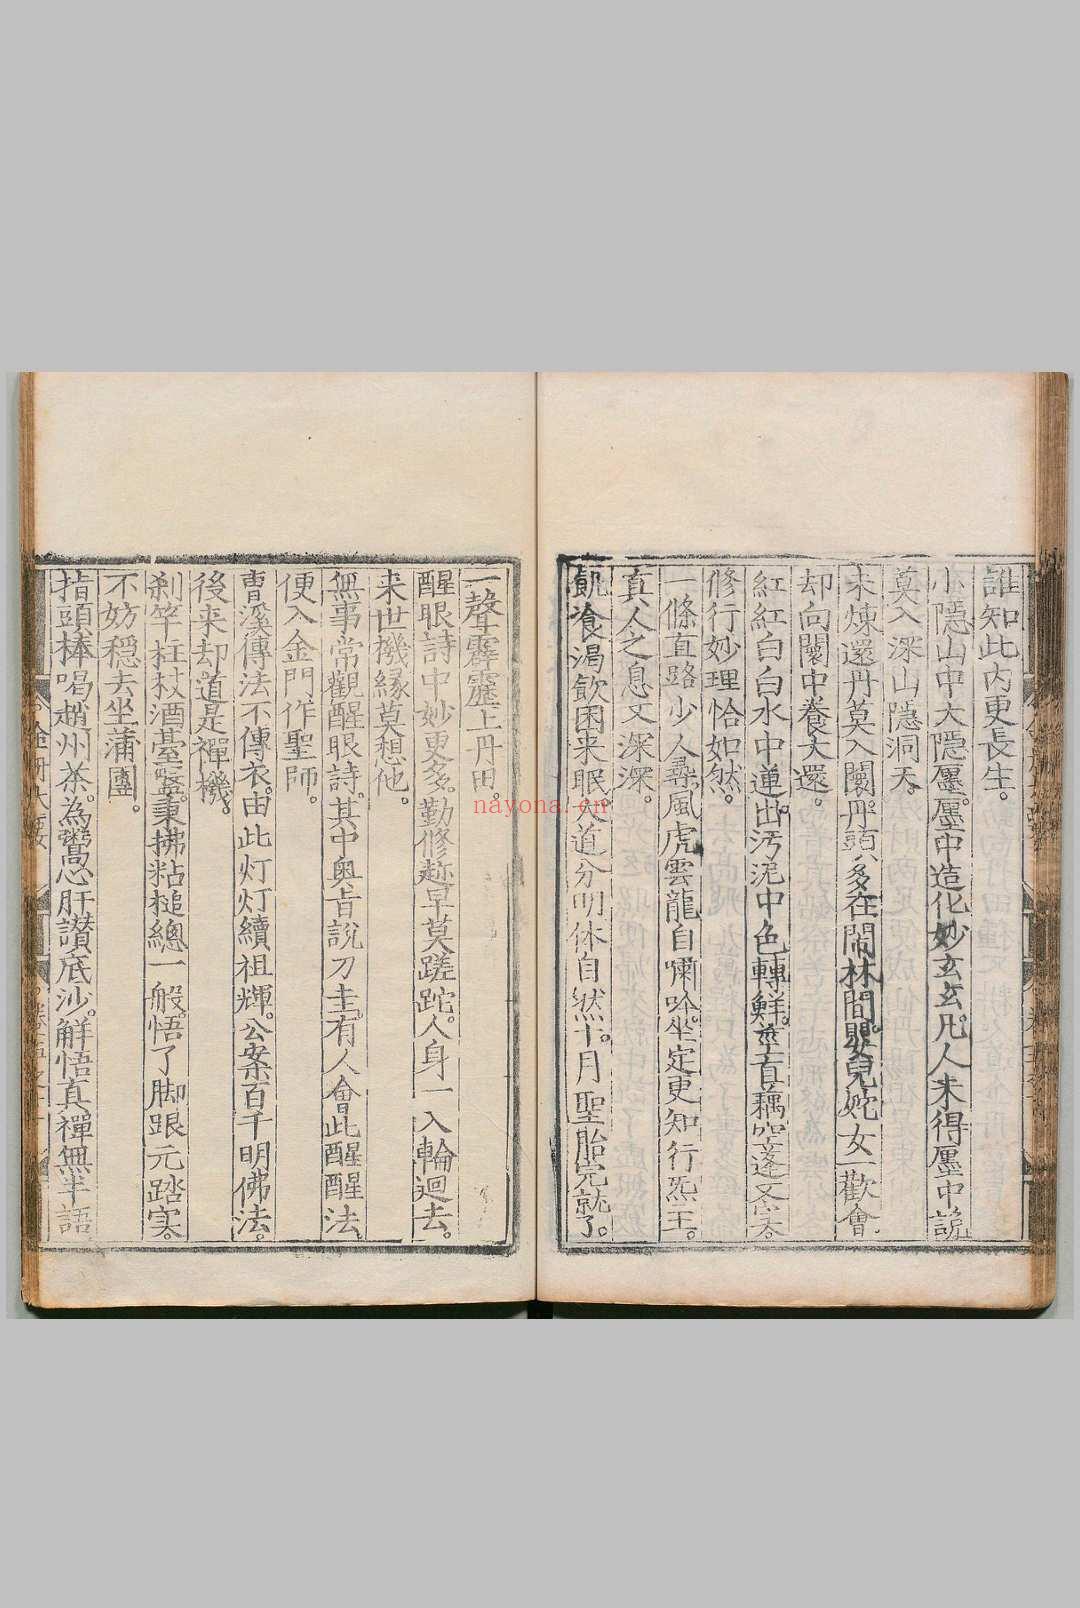 誰知此内更長生。
小隱山中大隱廛。廛中造化妙玄玄。凡人未得廛中說
莫入深山隱洞天。
未煉還丹莫入闤。丹頭多在鬧林間。嬰兒姹女一歡會
却向闤中養大還。
紅紅白白水中蓮。出污泥中色轉鮮。莖直藕空蓬又
修行妙理恰如然。
一條直路少人尋。風虎雲龍自嘯吟。坐定更知行炁主。
真人之息又深深。
飢飡渴飲困来眠。大道分明体自然。十月聖胎完就了。
一聲霹靂上丹田。
醒眼詩中妙更多。勤修趂早莫蹉跎。人身一入輪迴去。
来世機緣莫想他。
無事常觀醒眼詩。其中奥旨說刀圭。有人會此醒醒法。
便入金門作聖師。
曹溪傳法不傳衣。由此灯灯續祖輝。公案百千明佛法。
後来却道是禪機。
刹竿柱杖酒臺盤。秉拂粘槌總一般。悟了脚跟元踏实。
不妨穩去坐蒲團。
指頭棒喝趙州茶。為鸞心肝讃底沙。解悟真禪無半語
金丹大要
nayona.cn